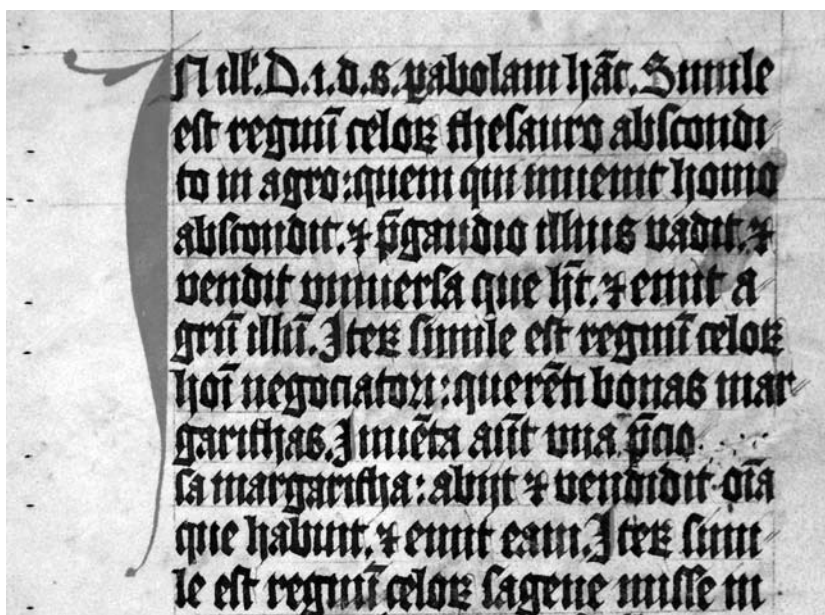 In ill̃. D. i. d. s. pabolam hãc. Simile
est regnũ celoꝝ thesauro abscondi
to in agro: quem qui inuenit homo
abscondit. ⁊ p̃ gaudio illius vadit. ⁊
vendit vniuersa que hꝫt. ⁊ emit a
grũ illũ. Iteꝝ simile est regnũ celoꝝ
hoĩ negociatori: querẽti bonas mar
garithas. Inuẽta aũt vna p̃cio
sa margaritha: abiit ⁊ vendidit oĩa
que habuit. ⁊ emit eam. Iteꝝ simi
le est regnũ celoꝝ sagene misse in